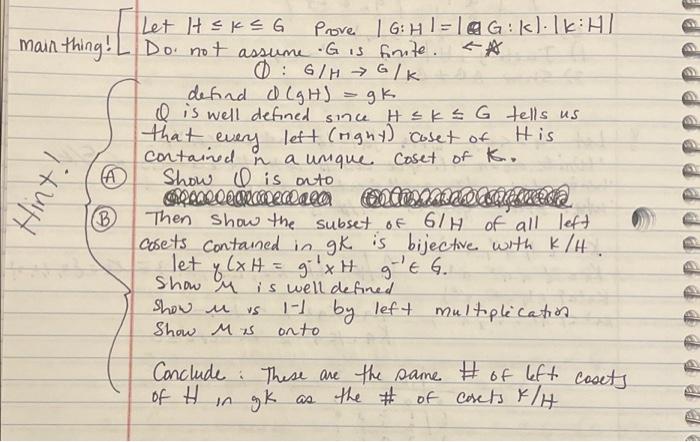 Let H ≤ K ≤ G Prove |G:H| = |G:K|·|K:H|
main thing!
Do not assume G is finite. ←☆
Φ : G/H → G/K
defind Φ(gH) = gK
Φ is well defined since H ≤ K ≤ G tells us
that every left (right) coset of H is
contained in a unique coset of K.
Hint!
Ⓐ Show Φ is onto
Ⓑ Then show the subset of G/H of all left
cosets contained in gK is bijective with K/H.
let (xH = g⁻¹xH g⁻¹ ∈ G.
Show M is well defined
Show M is 1-1 by left multiplication
Show M is onto
Conclude : These are the same # of left cosets
of H in gK as the # of cosets K/H